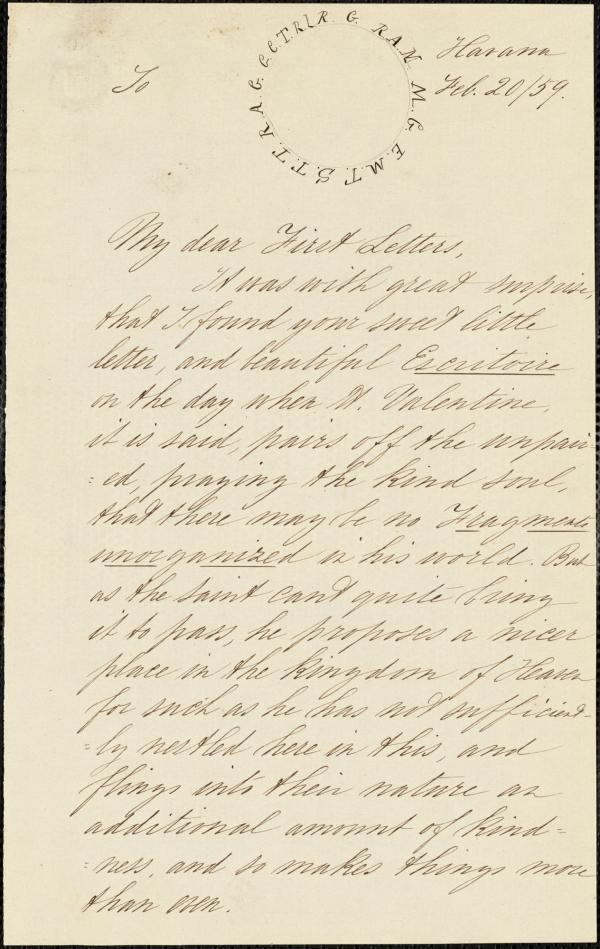 Havana
To
Feb. 20/59.
R. G. RAN M. G. E. M. T. S. T. T. R. A. G. G. C. T. R. I.
My dear First Letters,
It was with great surprise,
that I found your sweet little
letter, and beautiful Escritoire
on the day when St. Valentine,
it is said, pairs off the unpair-
:ed, praying the kind soul,
that there may be no Fragments
unorganized in his world. But
as the saint cant quite bring
it to pass, he proposes a nicer
place in the kingdom of Heaven
for such as he has not sufficient-
=ly nestled here in this, and
flings into their nature an
additional amount of kind=
:ness, and so makes things more
than even.